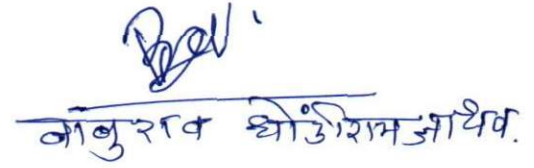 बाबुराव धोंडीराम जाधव.